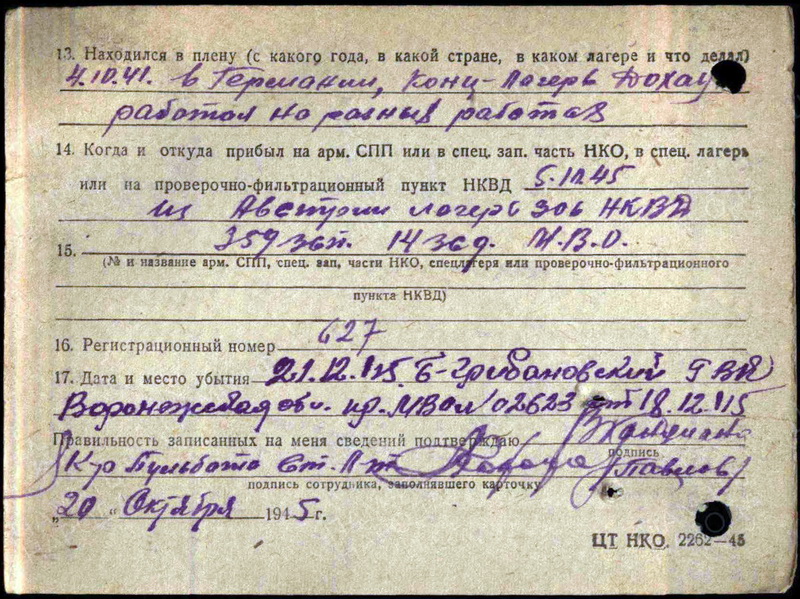 13. Находился в плену (с какого года, в какой стране, в каком лагере и что делал)
4.10.41. в Германии, Конц-Лагерь Дохау
работал на разных работах
14. Когда и откуда прибыл на арм. СПП или в спец. зап. часть НКО, в спец. лагерь
или на проверочно-фильтрационный пункт НКВД 5.10.45
из Австрии лагерь 306 НКВД
15. 359 зсп. 14 зсд. М.В.О.
(№ и название арм. СПП, спец. зап. части НКО, спецлагеря или проверочно-фильтрационного
пункта НКВД)
16. Регистрационный номер 627
17. Дата и место убытия 21.12.45 Б-Грибановский РВК
Воронежской обл. пр. МВО № 02623 от 18.12.45
Правильность записанных на меня сведений подтверждаю
подпись
К-р Ст. Л-т Павлов
подпись сотрудника, заполнявшего карточку
"20" Октября 1945 г.
ЦТ НКО. 2262—45